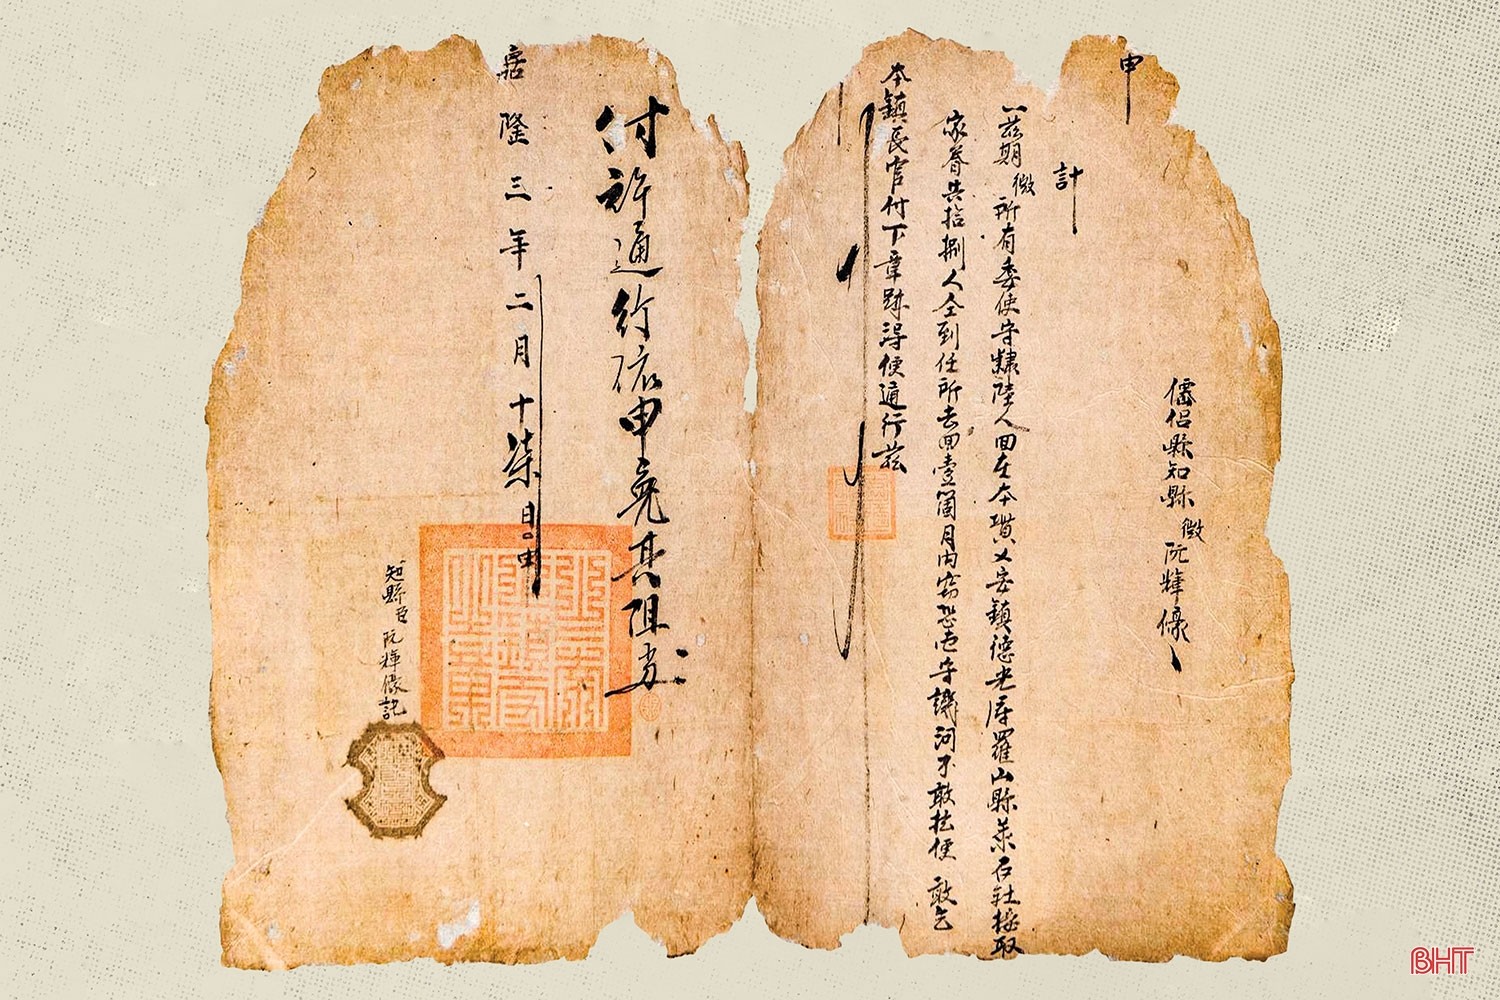 申
儒侣縣知縣微阮輝𠐤
計
一茲期微所有委使守隸陸人回在本貫乂安鎮德光府羅山縣萊石社接取
家眷共拾捌人仝到任所去回壹箇月內窃恐屯守譏河不敢拡便 敢乞
本鎮長官付下章跡淂便通行茲
付許通行依申免其阻當
嘉隆三年二月十柒日申
知縣臣阮輝𠐤記
BHT